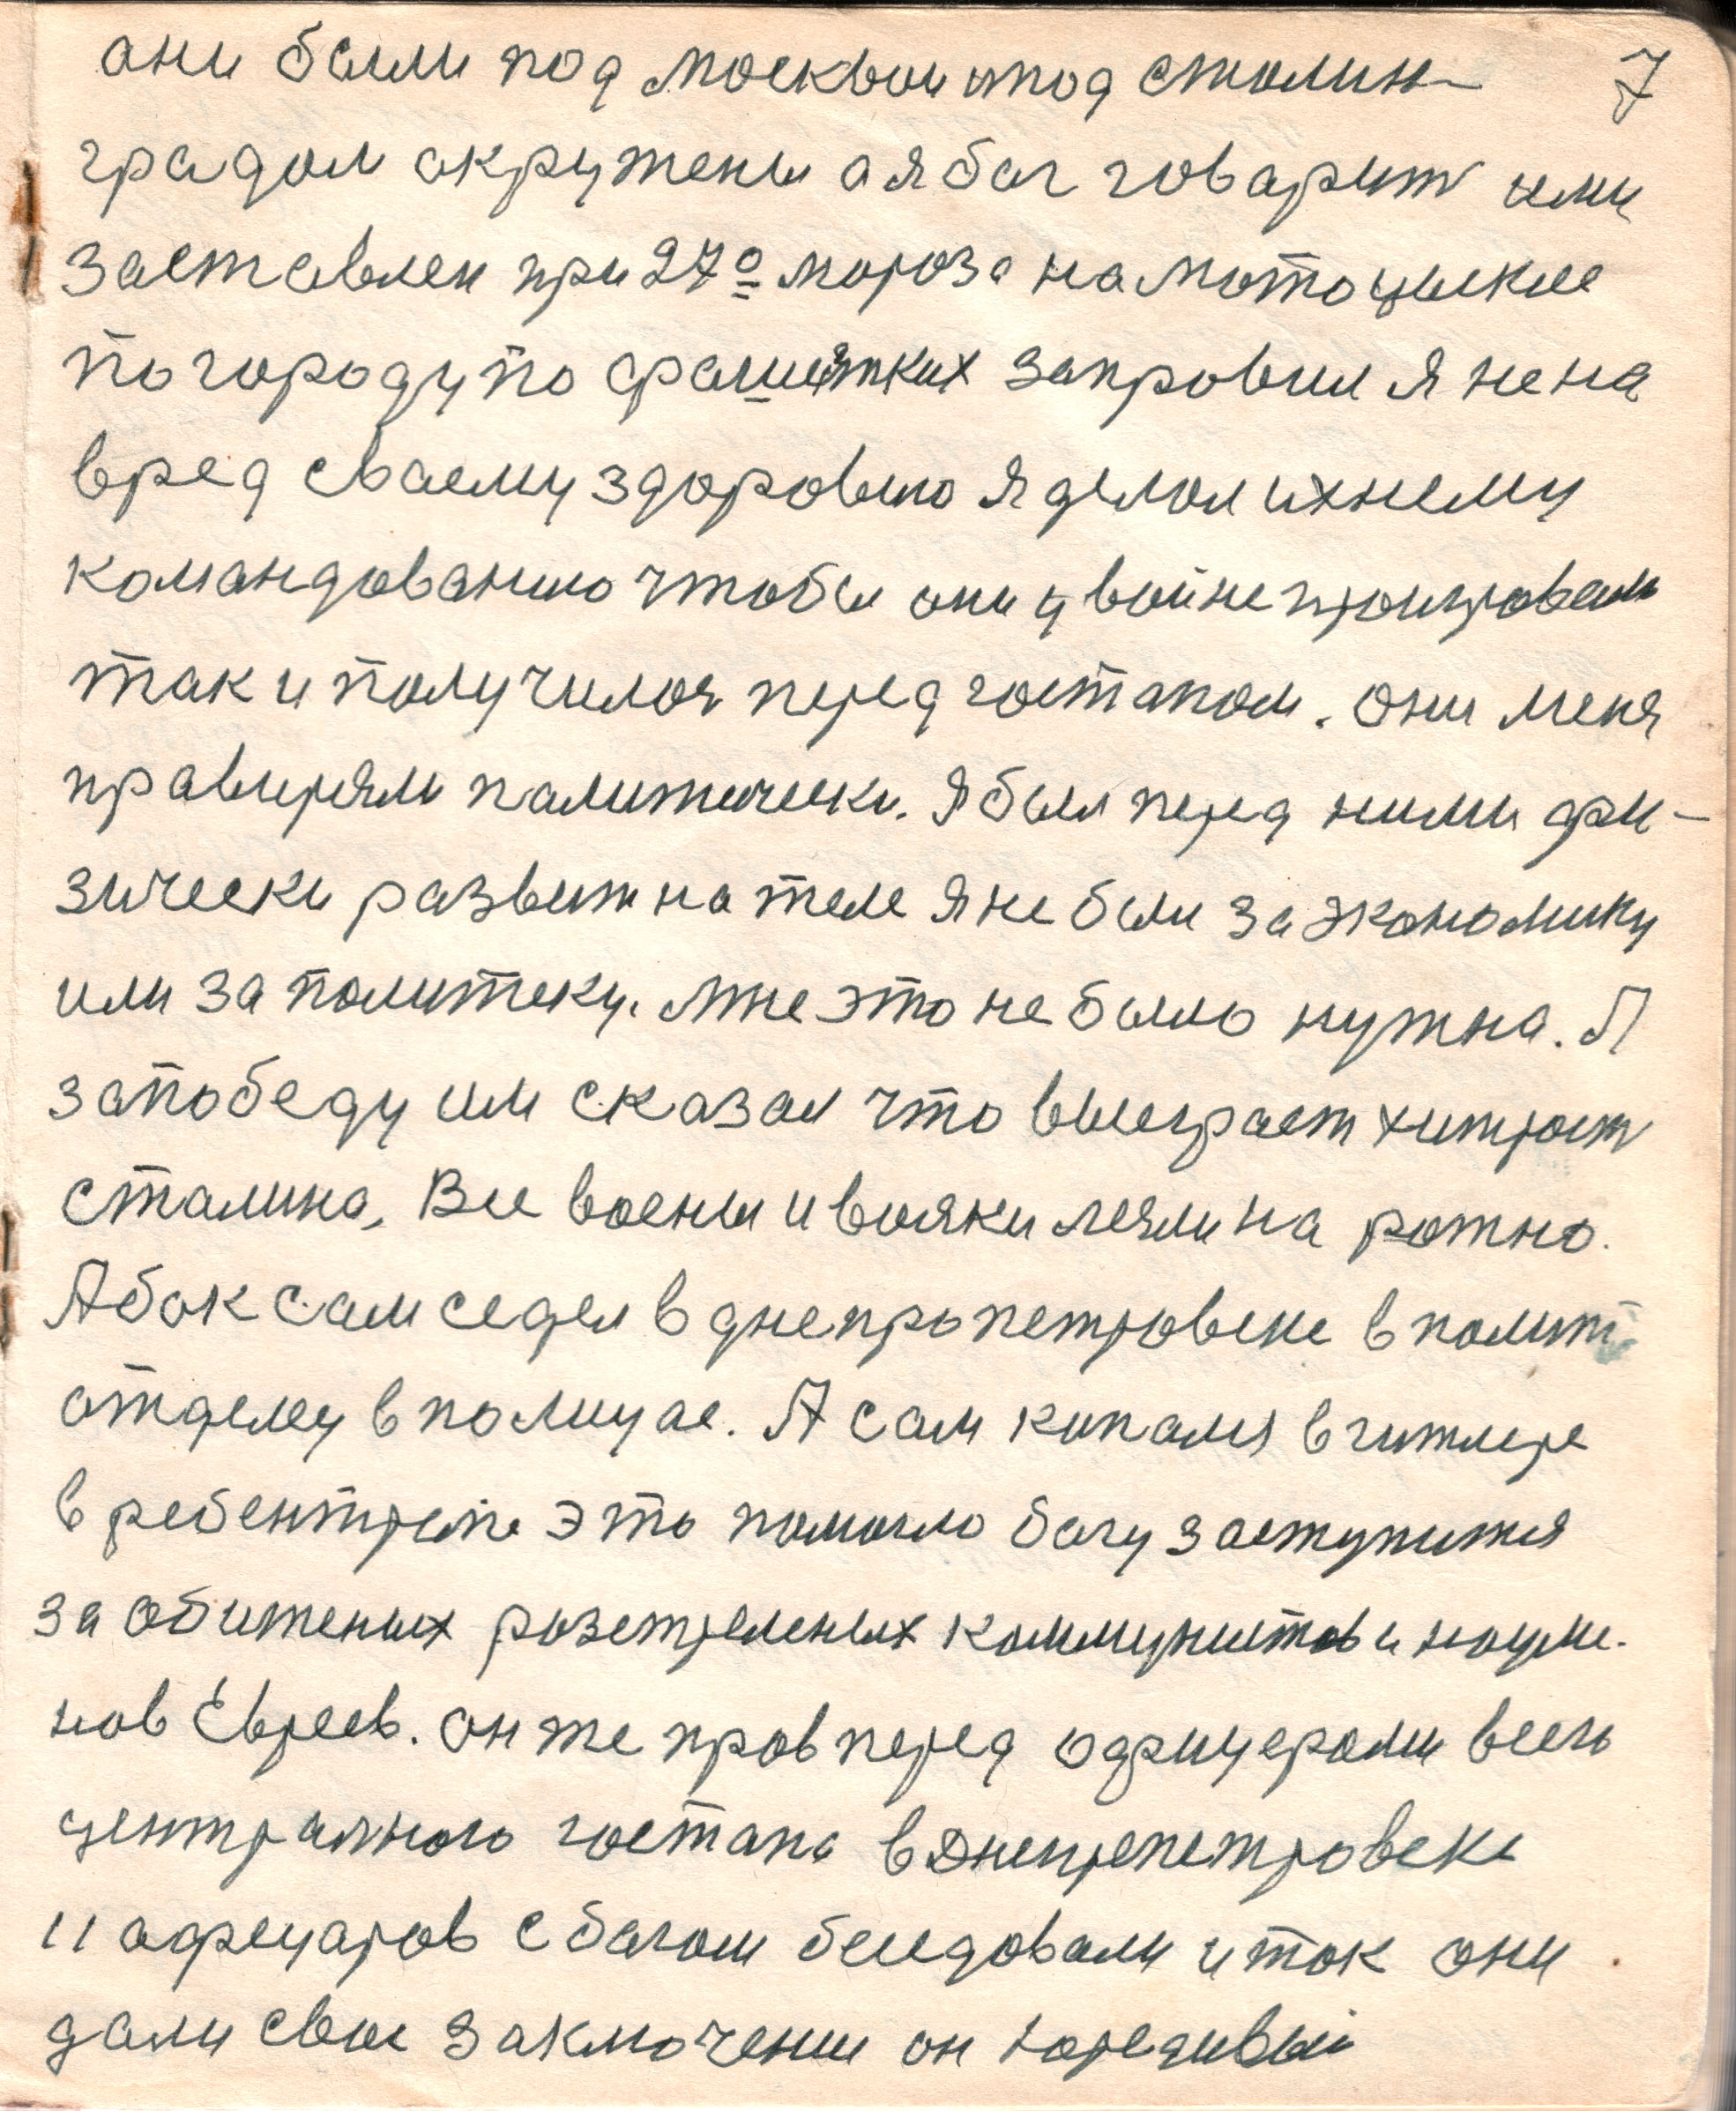 они были под москвои ипод сталин- 7
градом окружены а я бог говарит ими
заставлен при 27° мороза на мотоцыкле
по городу по фашистких заправил я не на
вред сваему здоровью я делал ихнему
командованию чтобы они у войне проигровали
так и получилоя перед гостапом. они меня
правиряли палитически. Я был перед ними фи-
зически развит на теле я не был за экономику
или за политеку. Мне это не было нужна. Я
за победу им сказал что выеграет хитрост
сталина. Все воены и вояки легли на
А бок сам седел в днепропетровске в полит
отделу в полицае. А сам копалея в гитлере
в ребентропе это помогло богу заступится
за обиженых розстреленых коммунистов и
Евреев. он же прав перед офицерами всего
централного гостапа в Днепрепетровске
11 афецаров с богом беседовали и ток они
дали свое заключение он юредивый